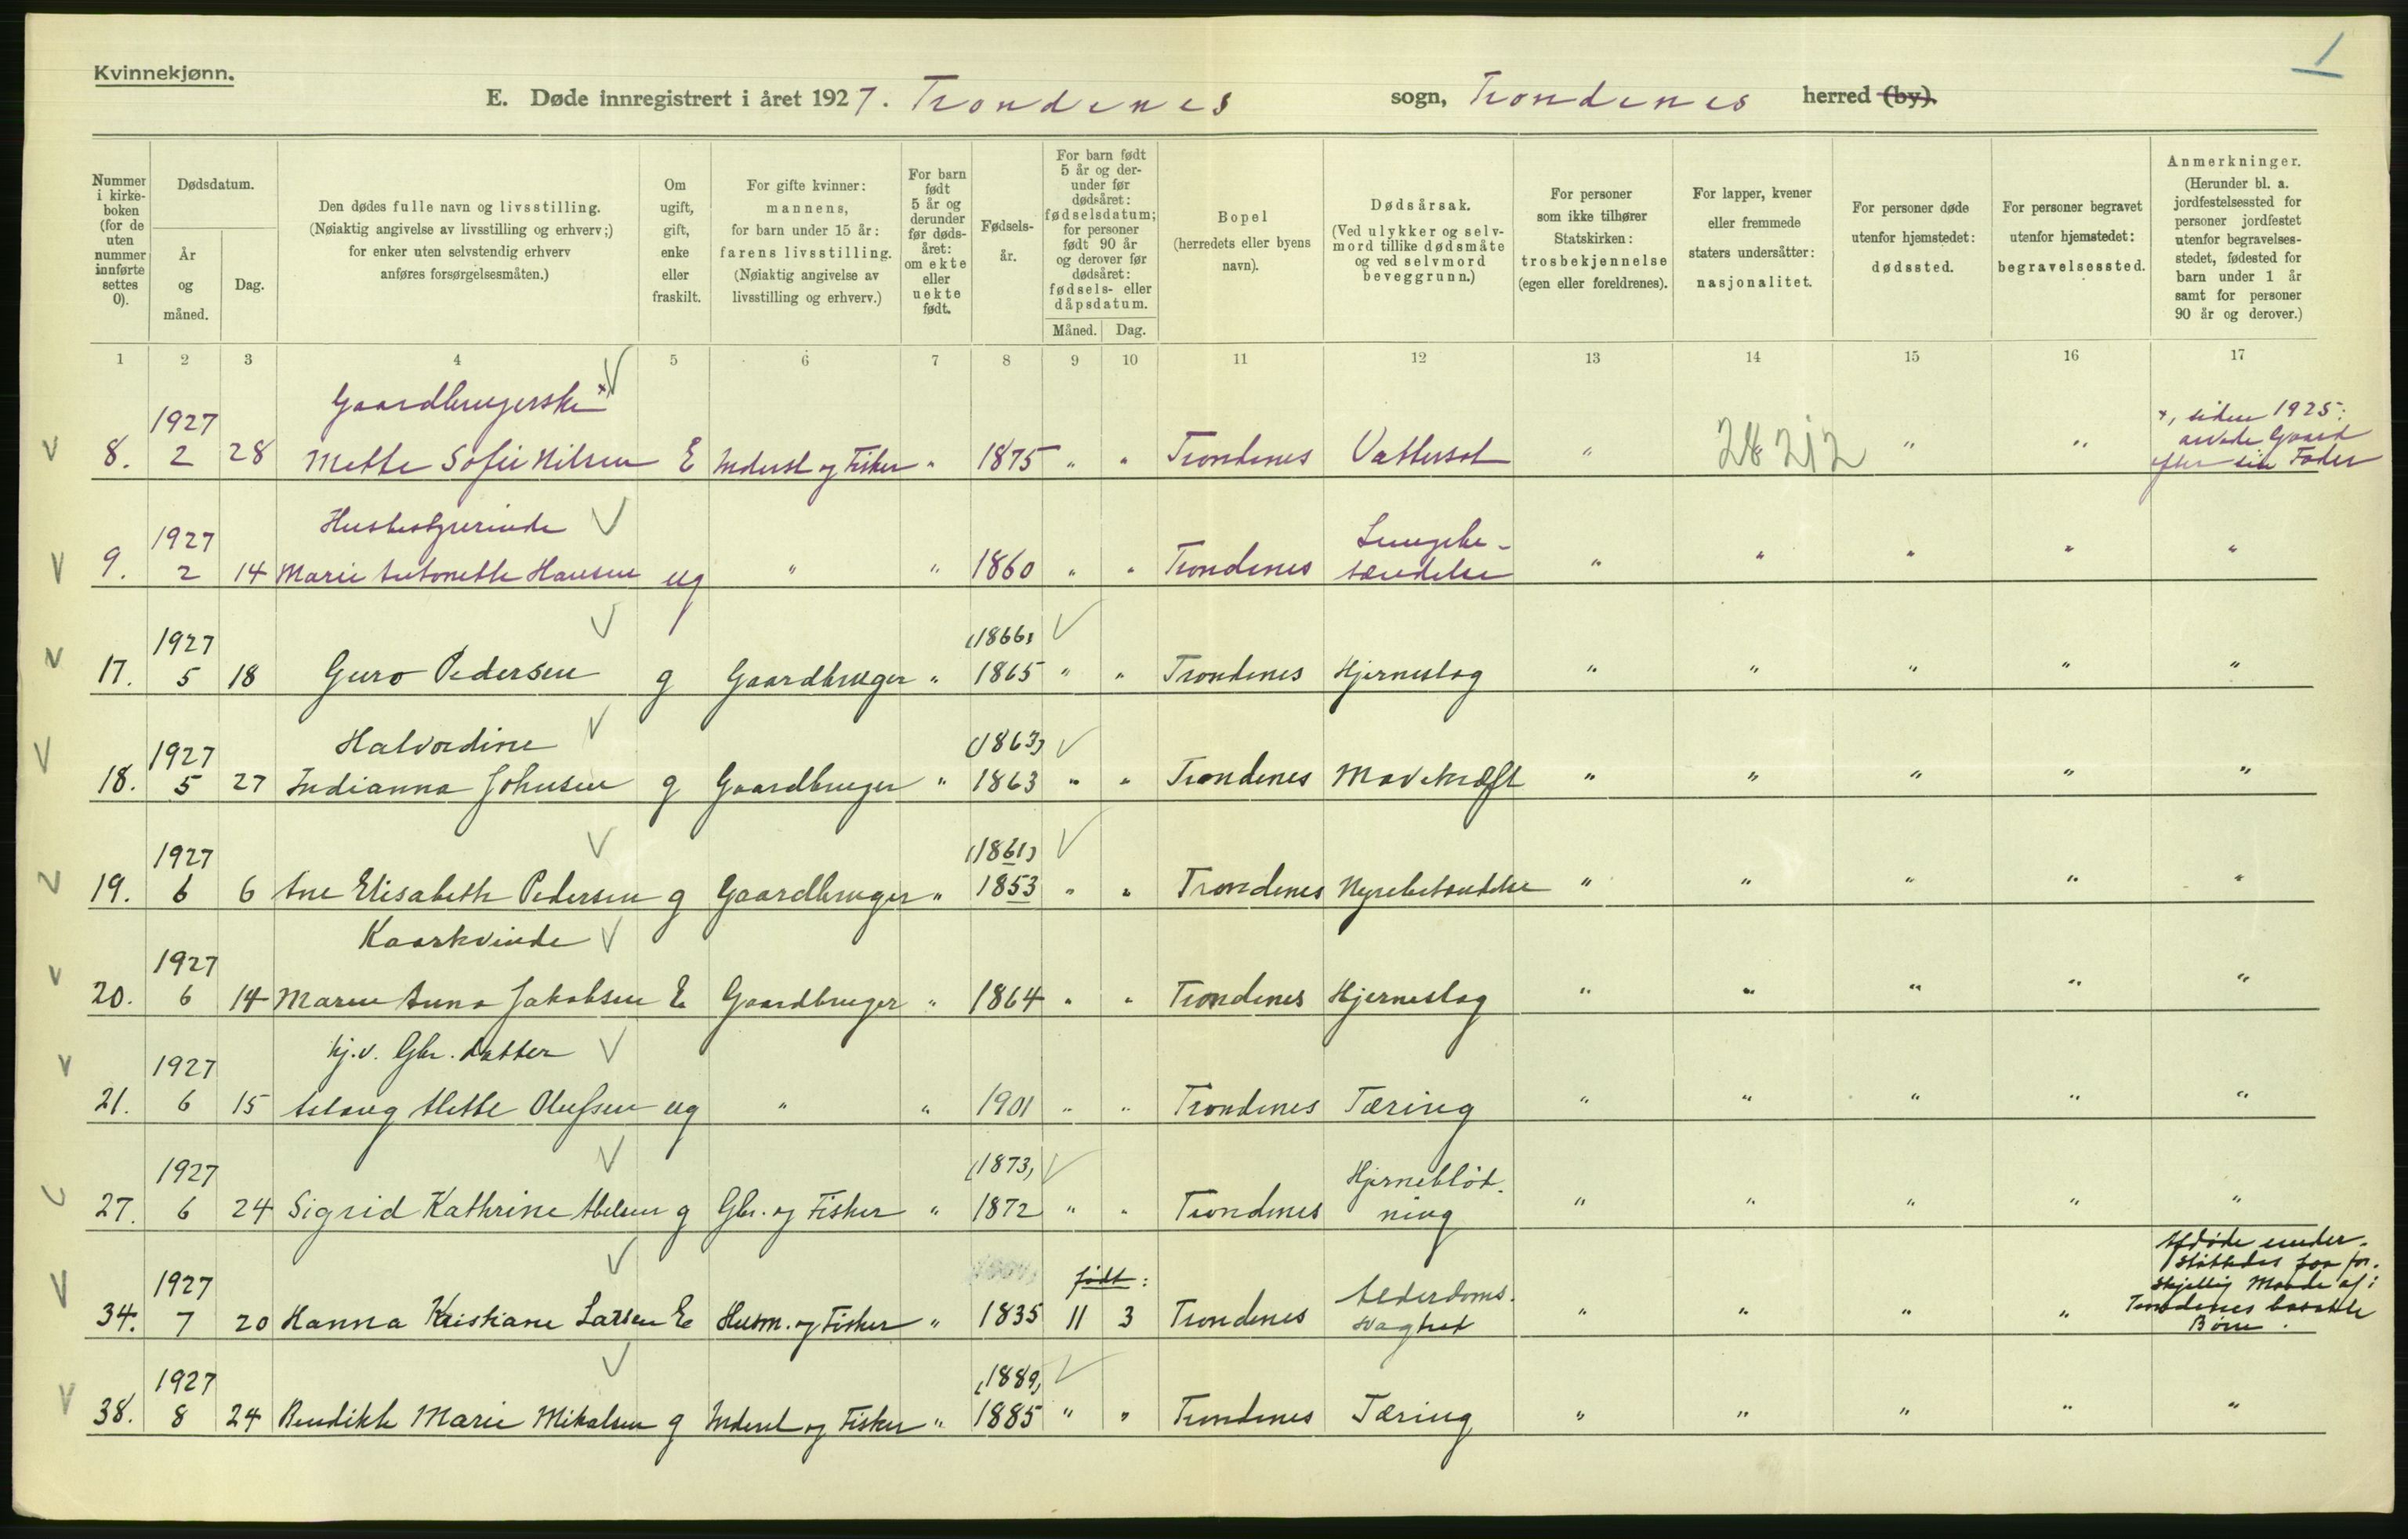 1
Kvinnekjønn.
E. Døde innregistrert i året 1927. Trondenes sogn, Trondenes herred (by).
Nummer i kirke-boken (for de uten nummer innførte settes 0).
Dødsdatum.
År og måned.
Dag.
Den dødes fulle navn og livsstilling.
(Nøiaktig angivelse av livsstilling og erhverv;)
for enker uten selvstendig erhverv
anføres forsørgelsesmåten.)
Om ugift, gift, enke eller fraskilt.
For gifte kvinner:
mannens,
for barn under 15 år:
farens livsstilling.
(Nøiaktig angivelse av
livsstilling og erhverv.)
For barn født 5 år og derunder før døds-året: om ekte eller uekte født.
Fødsels-år.
For barn født 5 år og der-under før dødsåret: fødselsdatum; for personer født 90 år og derover før dødsåret: fødsels- eller dåpsdatum.
Måned. Dag.
Bopel
(herredets eller byens
navn).
Dødsårsak.
(Ved ulykker og selv-
mord tillike dødsmåte
og ved selvmord
beveggrunn.)
For personer
som ikke tilhører
Statskirken:
trosbekjennelse
(egen eller foreldrenes).
For lapper, kvener
eller fremmede
staters undersåtter:
nasjonalitet.
For personer døde
utenfor hjemstedet:
dødssted.
For personer begravet
utenfor hjemstedet:
begravelsessted.
Anmerkninger.
(Herunder bl. a.
jordfestelsessted for
personer jordfestet
utenfor begravelses-
stedet, fødested for
barn under 1 år
samt for personer
90 år og derover.)
1 2 3 4 5 6 7 8 9 10 11 12 13 14 15 16 17
Gaardbrugerske x
1927
8. 2 28 Mette Sofie Nilsen E Inderst og Fisker " 1875 " " Trondenes Vattersot " 28212 " "
x, siden 1925:
arvede Gaard
efter sin Fader
Husbestyrerinde
1927 Lungebe-
9. 2 14 Marie Antonette Hansen ug " " 1860 " " Trondenes tændelse " " " " "
1927 (1866)
17. 5 18 Guro Pedersen g Gaardbruger " 1865 " " Trondenes Hjerneslag " " " " "
1927 Halvordine (1863)
18. 5 27 Indianna Johnsen g Gaardbruger " 1863 " " Trondenes Mavekræft " " " " "
1927 (1861)
19. 6 6 Ane Elisabeth Pedersen g Gaardbruger " 1853 " " Trondenes Nyrebetændelse " " " " "
Kaarkvinde
1927
20. 6 14 Maren Anna Jakobsen E Gaardbruger " 1864 " " Trondenes Hjerneslag " " " " "
hj.v. Gbr. datter
1927
21. 6 15 Aslaug Mette Olufsen ug " " 1901 " " Trondenes Tæring " " " " "
1927 (1873) Hjerneblöd-
27. 6 24 Sigrid Kathrine Abelsen g Gbr. og Fisker " 1872 " " Trondenes ning " " " " "
1927 født: Alderdoms-
34. 7 20 Hanna Kristiane Larsen E Husm. og Fisker " 1835 11 3 Trondenes svaghet " " " "
Afdöde under-
støttedes paa for-
skjellig Maade af i
Trondenes bosatte
Børn.
1927 (1889)
38. 8 24 Bendikte Marie Mikalsen g Inderst og Fisker " 1885 " " Trondenes Tæring " " " " "